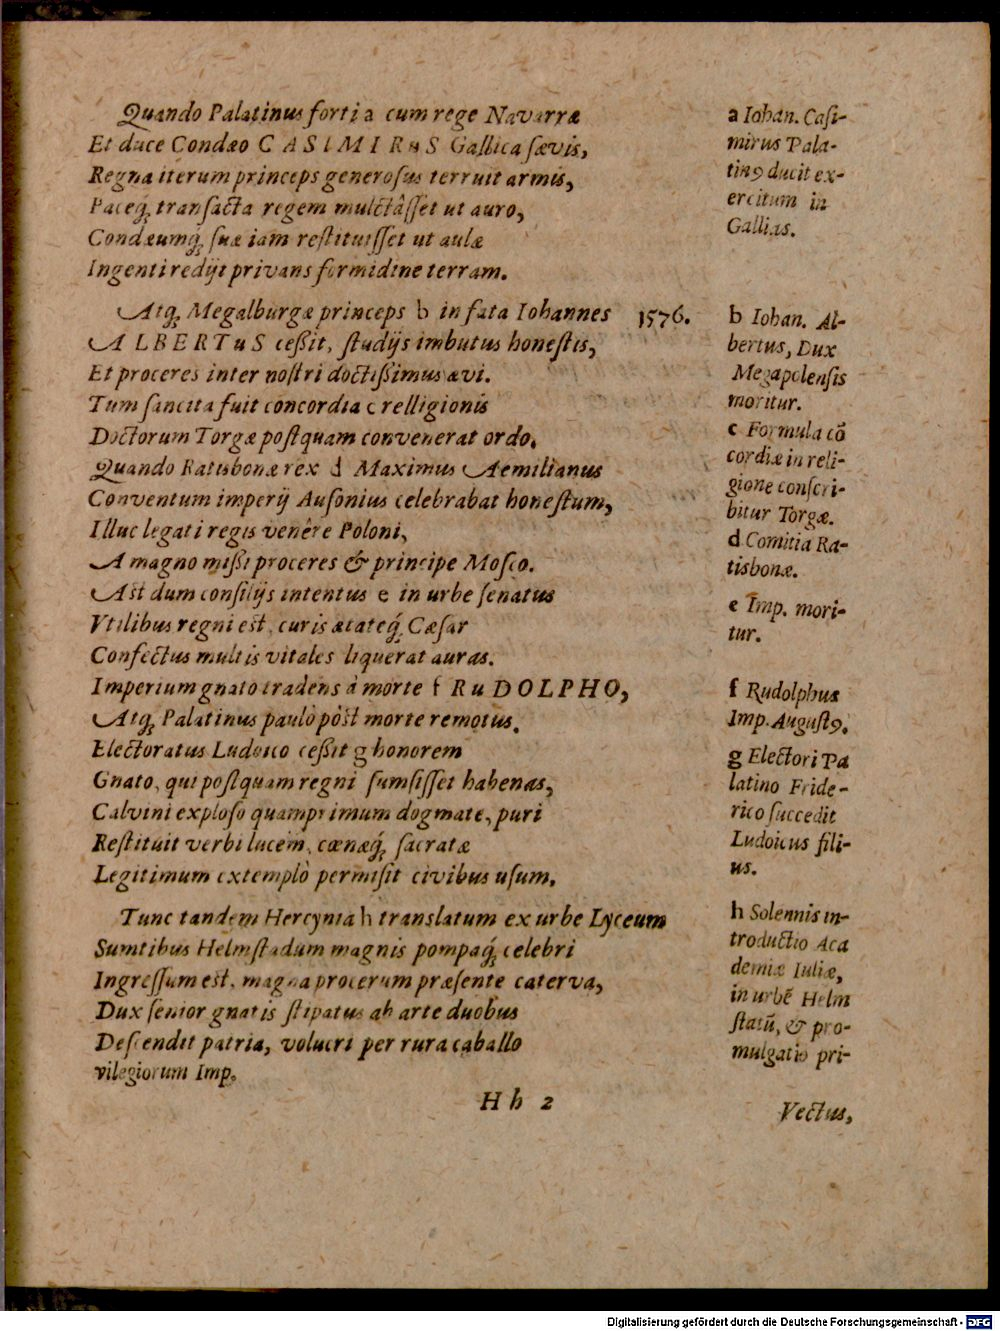 Quando Palatinus forti a cum rege Navarræ
Et duce Condæo CASIMIRuS Gallica sævis,
Regna iterum princeps generosus terruit armis,
Paceq́; transacta regem mulctâsset ut auro,
Condæumq́; suæ iam restituisset ut aulæ
Ingenti redijt privans formidine terram.
a Iohan. Casi-
mirus Pala-
tinꝰ ducit ex-
ercitum in
Gallias.
Atq; Megalburgæ princeps b in fata Iohannes 1576.
ALBERTuS ceßit, studijs imbutus honestis,
Et proceres inter nostri doctißimus ævi.
Tum sancita fuit concordia c relligionis
Doctorum Torgæ postquam convenerat ordo.
Quando Ratisbonæ rex d Maximus Aemilianus
Conventum imperij Ausonius celebrabat honestum,
Illuc legati regis venêre Poloni,
A magno mißi proceres & principe Mosco.
Ast dum consilijs intentus e in urbe senatus
Vtilibus regni est, curis ætateq́; Cæsar
Confectus multis vitales liquerat auras.
Imperium gnato tradens à morte f RuDOLPHO,
Atq; Palatinus paulò pòst morte remotus.
Electoratus Ludoico ceßit g honorem
Gnato, qui postquam regni sumsisset habenas,
Calvini exploso quamprimum dogmate, puri
Restituit verbi lucem, cœnæq́; sacratæ
Legitimum extemplò permisit civibus usum.
b Iohan. Al-
bertus, Dux
Megapolensis
moritur.
c Formula cõ
cordiæ in reli-
gione conscri-
bitur Torgæ.
d Comitia Ra-
tisbonæ.
e Imp. mori-
tur.
f Rudolphus
Imp. Augustꝰ.
g Electori Pa
latino Fride-
rico succedit
Ludoicus fili-
us.
Tunc tandem Hercynia h translatum ex urbe Lyceum
Sumtibus Helmstadum magnis pompaq́; celebri
Ingressum est, magna procerum præsente caterva,
Dux senior gnatis stipatus ab arte duobus
Descendit patria, volucri per rura caballo
h Solennis in-
troductio Aca
demiæ Iuliæ,
in urbẽ Helm
statũ, & pro-
mulgatio pri-
vilegiorum Imp.
Hh 2
Vectus,
Digitalisierung gefördert durch die Deutsche Forschungsgemeinschaft - DFG